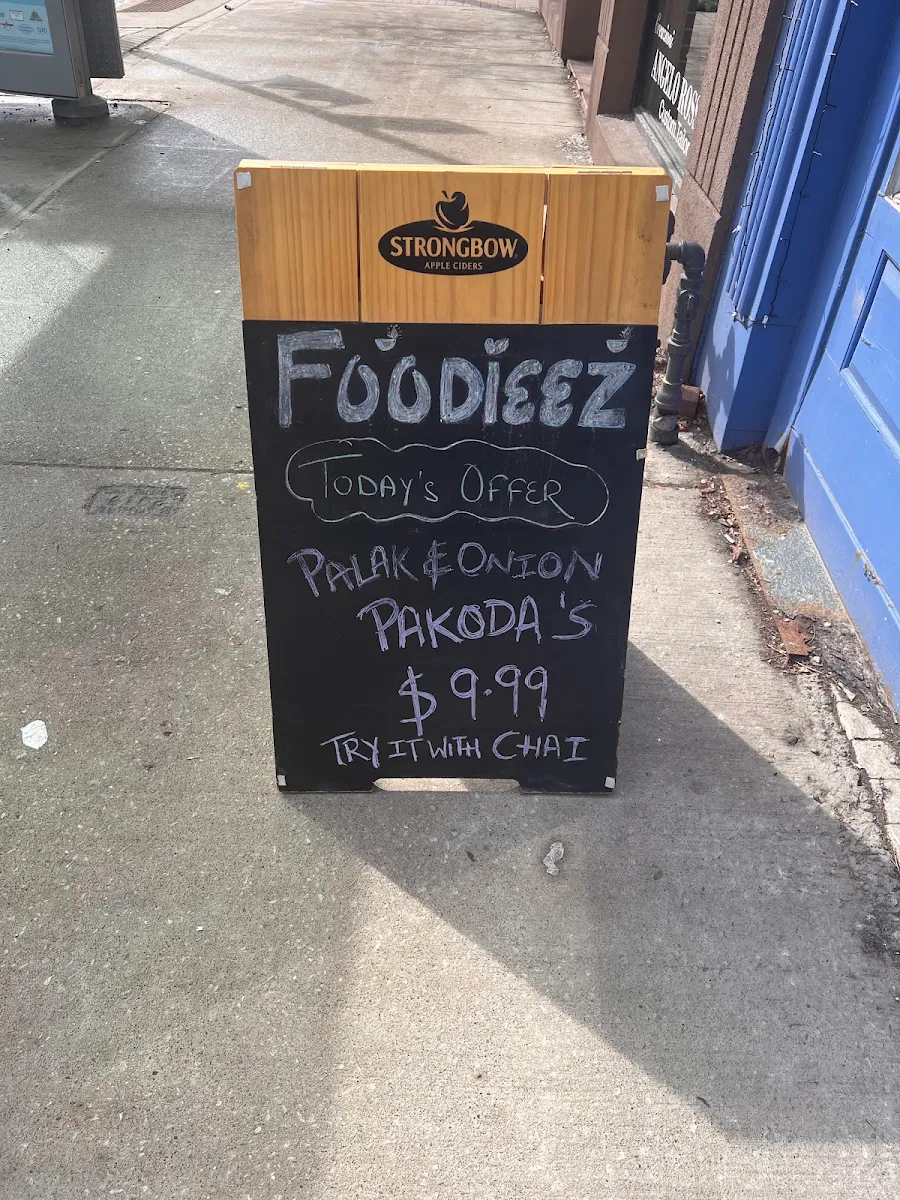 STRONGBOW
APPLE CIDERS
FOODIEEZ
TODAY'S OFFER
PALAK & ONION
PAKODA'S
$9.99
TRY IT WITH CHAI
ANGELO ROS
Custom